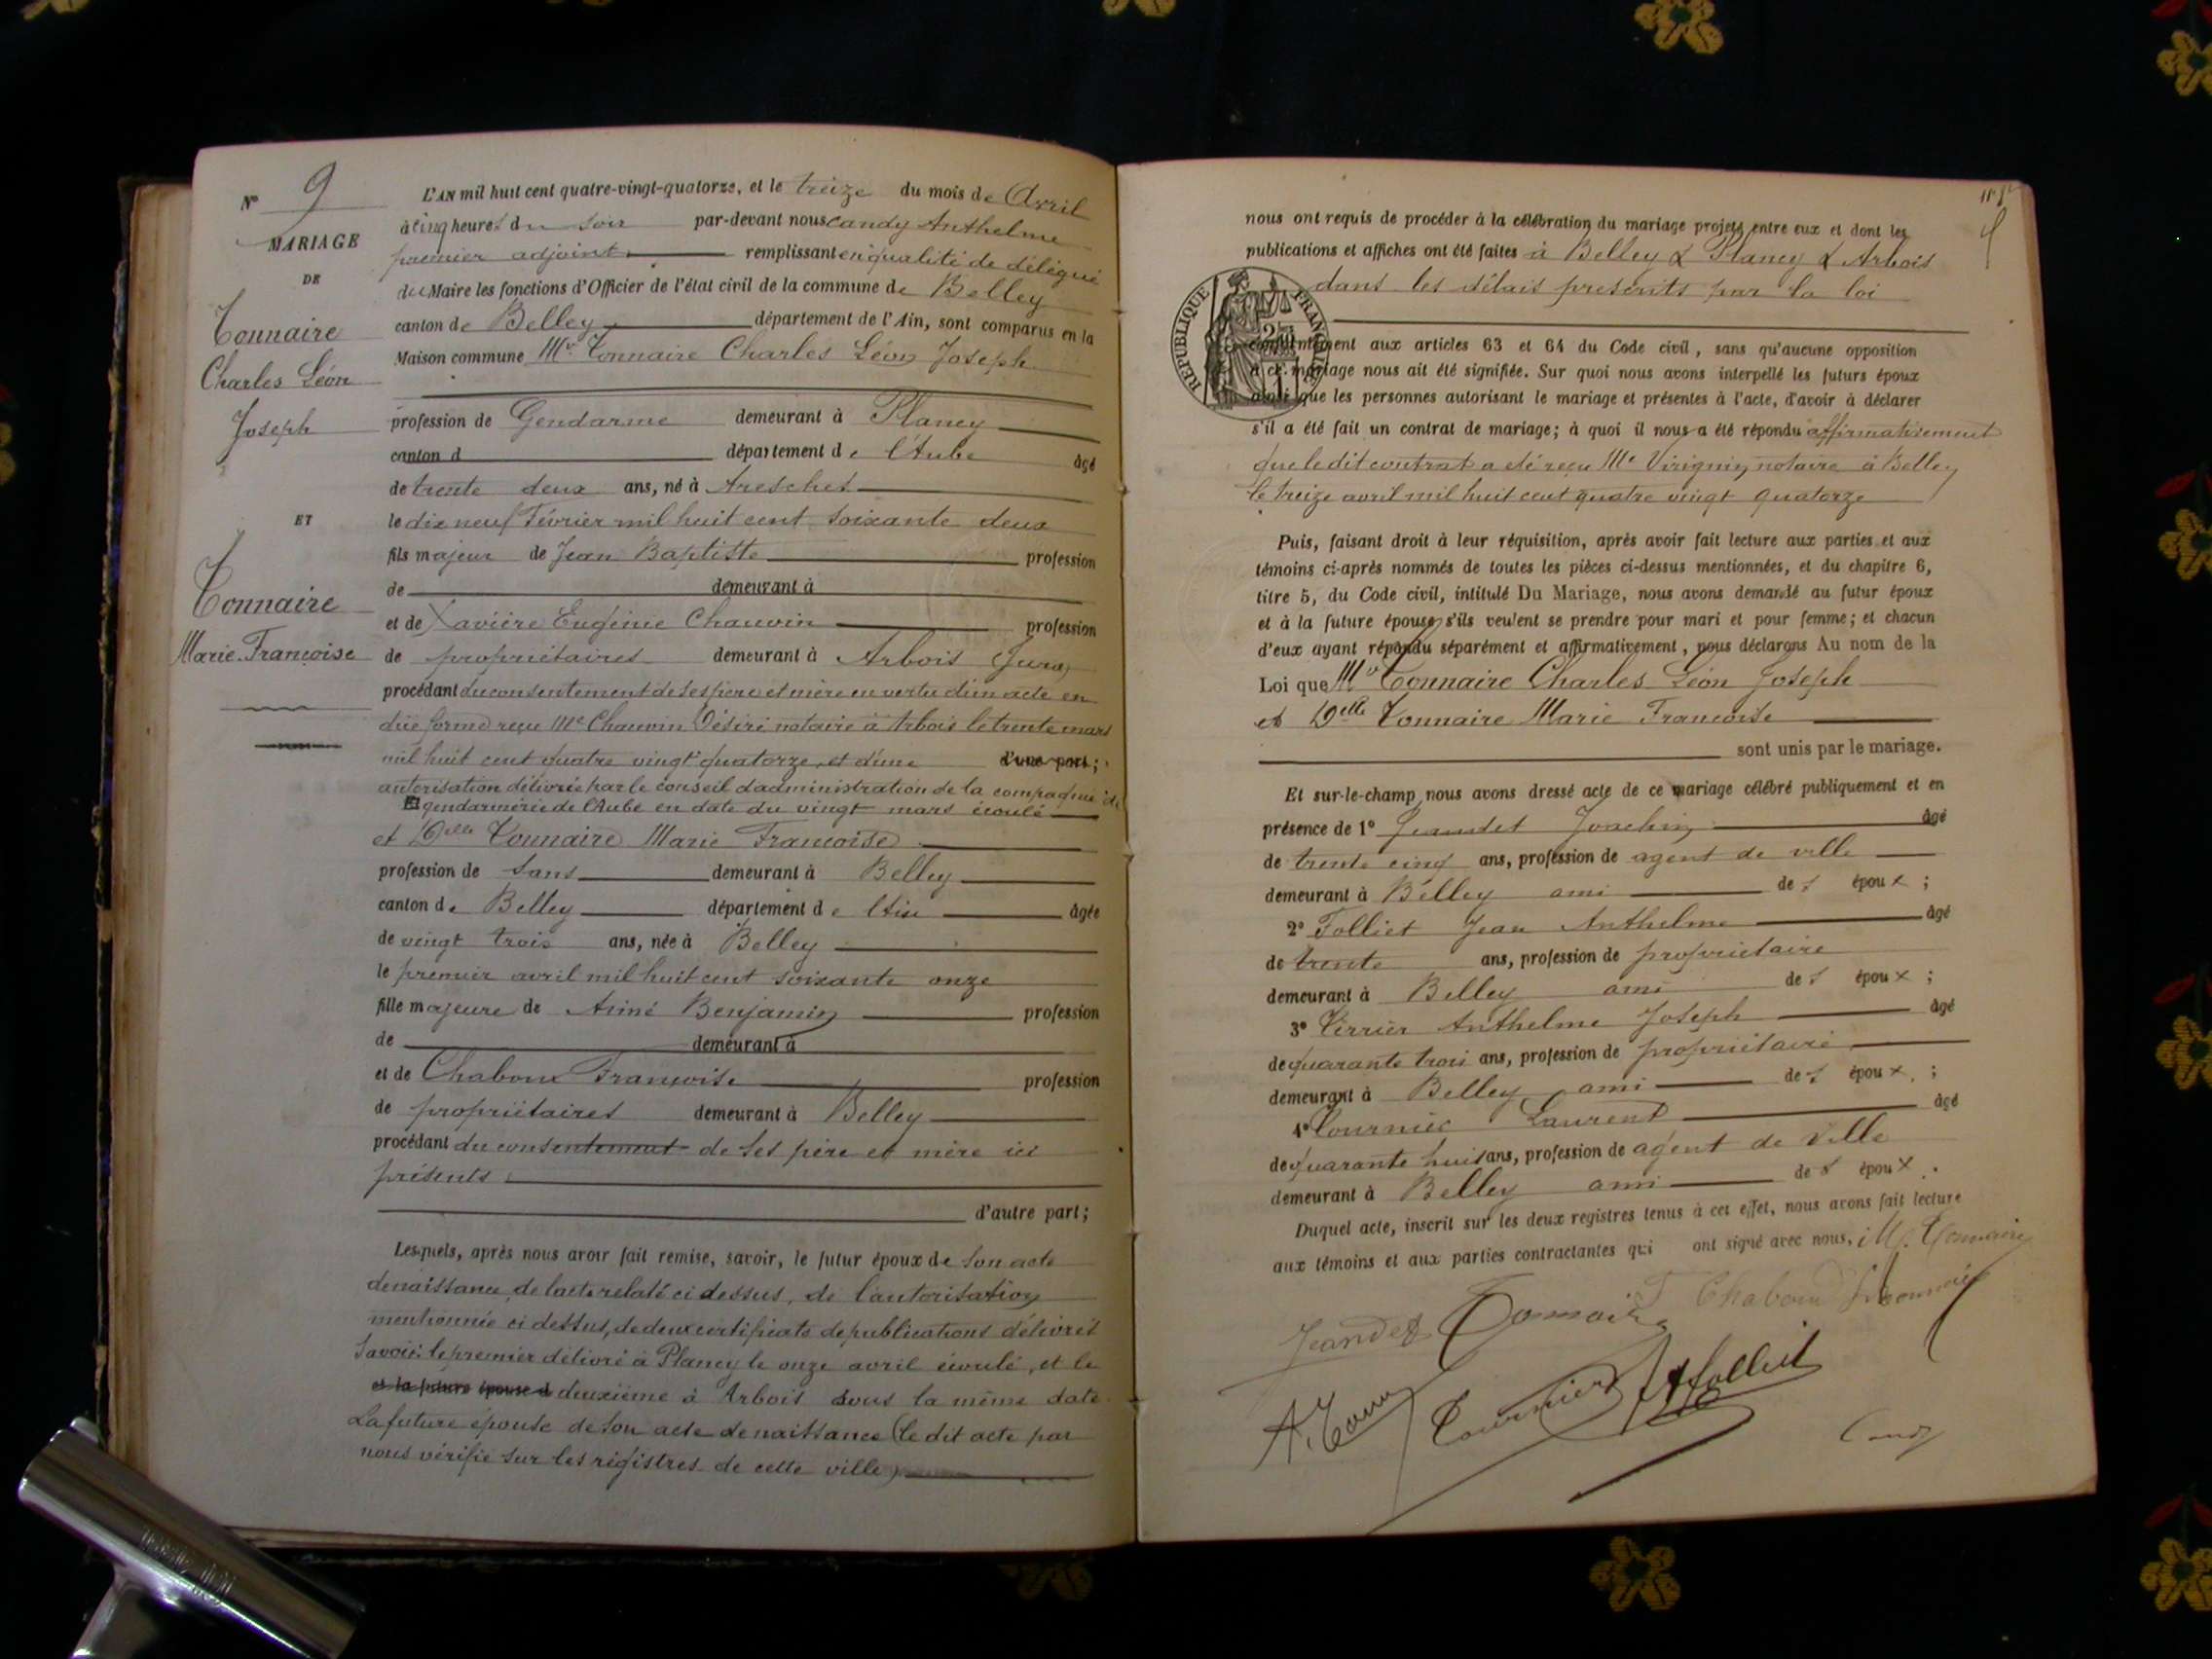 N° 9
MARIAGE
DE
Tonnaire
Charles Léon
Joseph
ET
Tonnaire
Marie Françoise
L'AN mil huit cent quatre-vingt-quatorze, et le treize du mois de Avril
à cinq heures du soir par-devant nous Candy Anthelme
premier adjoint remplissant en qualité de délégué
du Maire les fonctions d'Officier de l'état civil de la commune de Belley
canton de Belley département de l'Ain, sont comparus en la
Maison commune Mr Tonnaire Charles Léon Joseph
profession de Gendarme demeurant à Plancy
canton d département de l'Aube âgé
de trente deux ans, né à Aresches
le dix neuf Février mil huit cent soixante deux
fils majeur de Jean Baptiste profession
de demeurant à
et de Xavière Eugénie Chauvin profession
de propriétaires demeurant à Arbois (Jura)
procédant du consentement de ses père et mère en vertu d'un acte en
due forme reçu Me Chauvin Désiré notaire à Arbois le trente mars
mil huit cent quatre vingt quatorze, et d'une d'une part;
autorisation délivrée par le conseil d'administration de la compagnie de
Et gendarmerie de l'Aube en date du vingt mars écoulé
et Delle Tonnaire Marie Françoise
profession de sans demeurant à Belley
canton de Belley département de l'Ain âgée
de vingt trois ans, née à Belley
le premier avril mil huit cent soixante onze
fille majeure de Aimé Benjamin profession
de demeurant à
et de Chaboux Françoise profession
de propriétaires demeurant à Belley
procédant du consentement de ses père et mère ici
présents
d'autre part;
Lesquels, après nous avoir fait remise, savoir, le futur époux de son acte
de naissance, de l'acte relaté ci dessus, de l'autorisation
mentionnée ci dessus, de deux certificats de publications délivrés
savoir: le premier délivré à Plancy le onze avril écoulé, et le
et la future épouse d deuxième à Arbois sous la même date
La future épouse de son acte de naissance (le dit acte par
nous vérifié sur les régistres de cette ville)
nous ont requis de procéder à la célébration du mariage projeté entre eux et dont les
publications et affiches ont été faites à Belley & Plancy & Arbois
dans les délais prescrits par la loi
RÉPUBLIQUE FRANÇAISE
conformément aux articles 63 et 64 du Code civil, sans qu'aucune opposition
à ce mariage nous ait été signifiée. Sur quoi nous avons interpellé les futurs époux
ainsi que les personnes autorisant le mariage et présentes à l'acte, d'avoir à déclarer
s'il a été fait un contrat de mariage; à quoi il nous a été répondu affirmativement
que le dit contrat a été reçu Me Virignin, notaire à Belley
le treize avril mil huit cent quatre vingt quatorze
Puis, faisant droit à leur réquisition, après avoir fait lecture aux parties et aux
témoins ci-après nommés de toutes les pièces ci-dessus mentionnées, et du chapitre 6,
titre 5, du Code civil, intitulé Du Mariage, nous avons demandé au futur époux
et à la future épouse s'ils veulent se prendre pour mari et pour femme; et chacun
d'eux ayant répondu séparément et affirmativement, nous déclarons Au nom de la
Loi que Mr Tonnaire Charles Léon Joseph
et Delle Tonnaire Marie Françoise
sont unis par le mariage.
Et sur-le-champ nous avons dressé acte de ce mariage célébré publiquement et en
présence de 1° Jeandet Joachin âgé
de trente cinq ans, profession de agent de ville
demeurant à Belley ami des époux;
2° Folliet Jean Anthelme âgé
de trente ans, profession de propriétaire
demeurant à Belley ami des époux;
3° Verrier Anthelme Joseph âgé
de quarante trois ans, profession de propriétaire
demeurant à Belley ami des époux;
4° Tournier Laurent âgé
de quarante huit ans, profession de agent de ville
demeurant à Belley ami des époux.
Duquel acte, inscrit sur les deux registres tenus à cet effet, nous avons fait lecture
aux témoins et aux parties contractantes qui ont signé avec nous. M. Tonnaire
Jeandet Tonnaire F Chaboux
Tournier Folliet
Candy